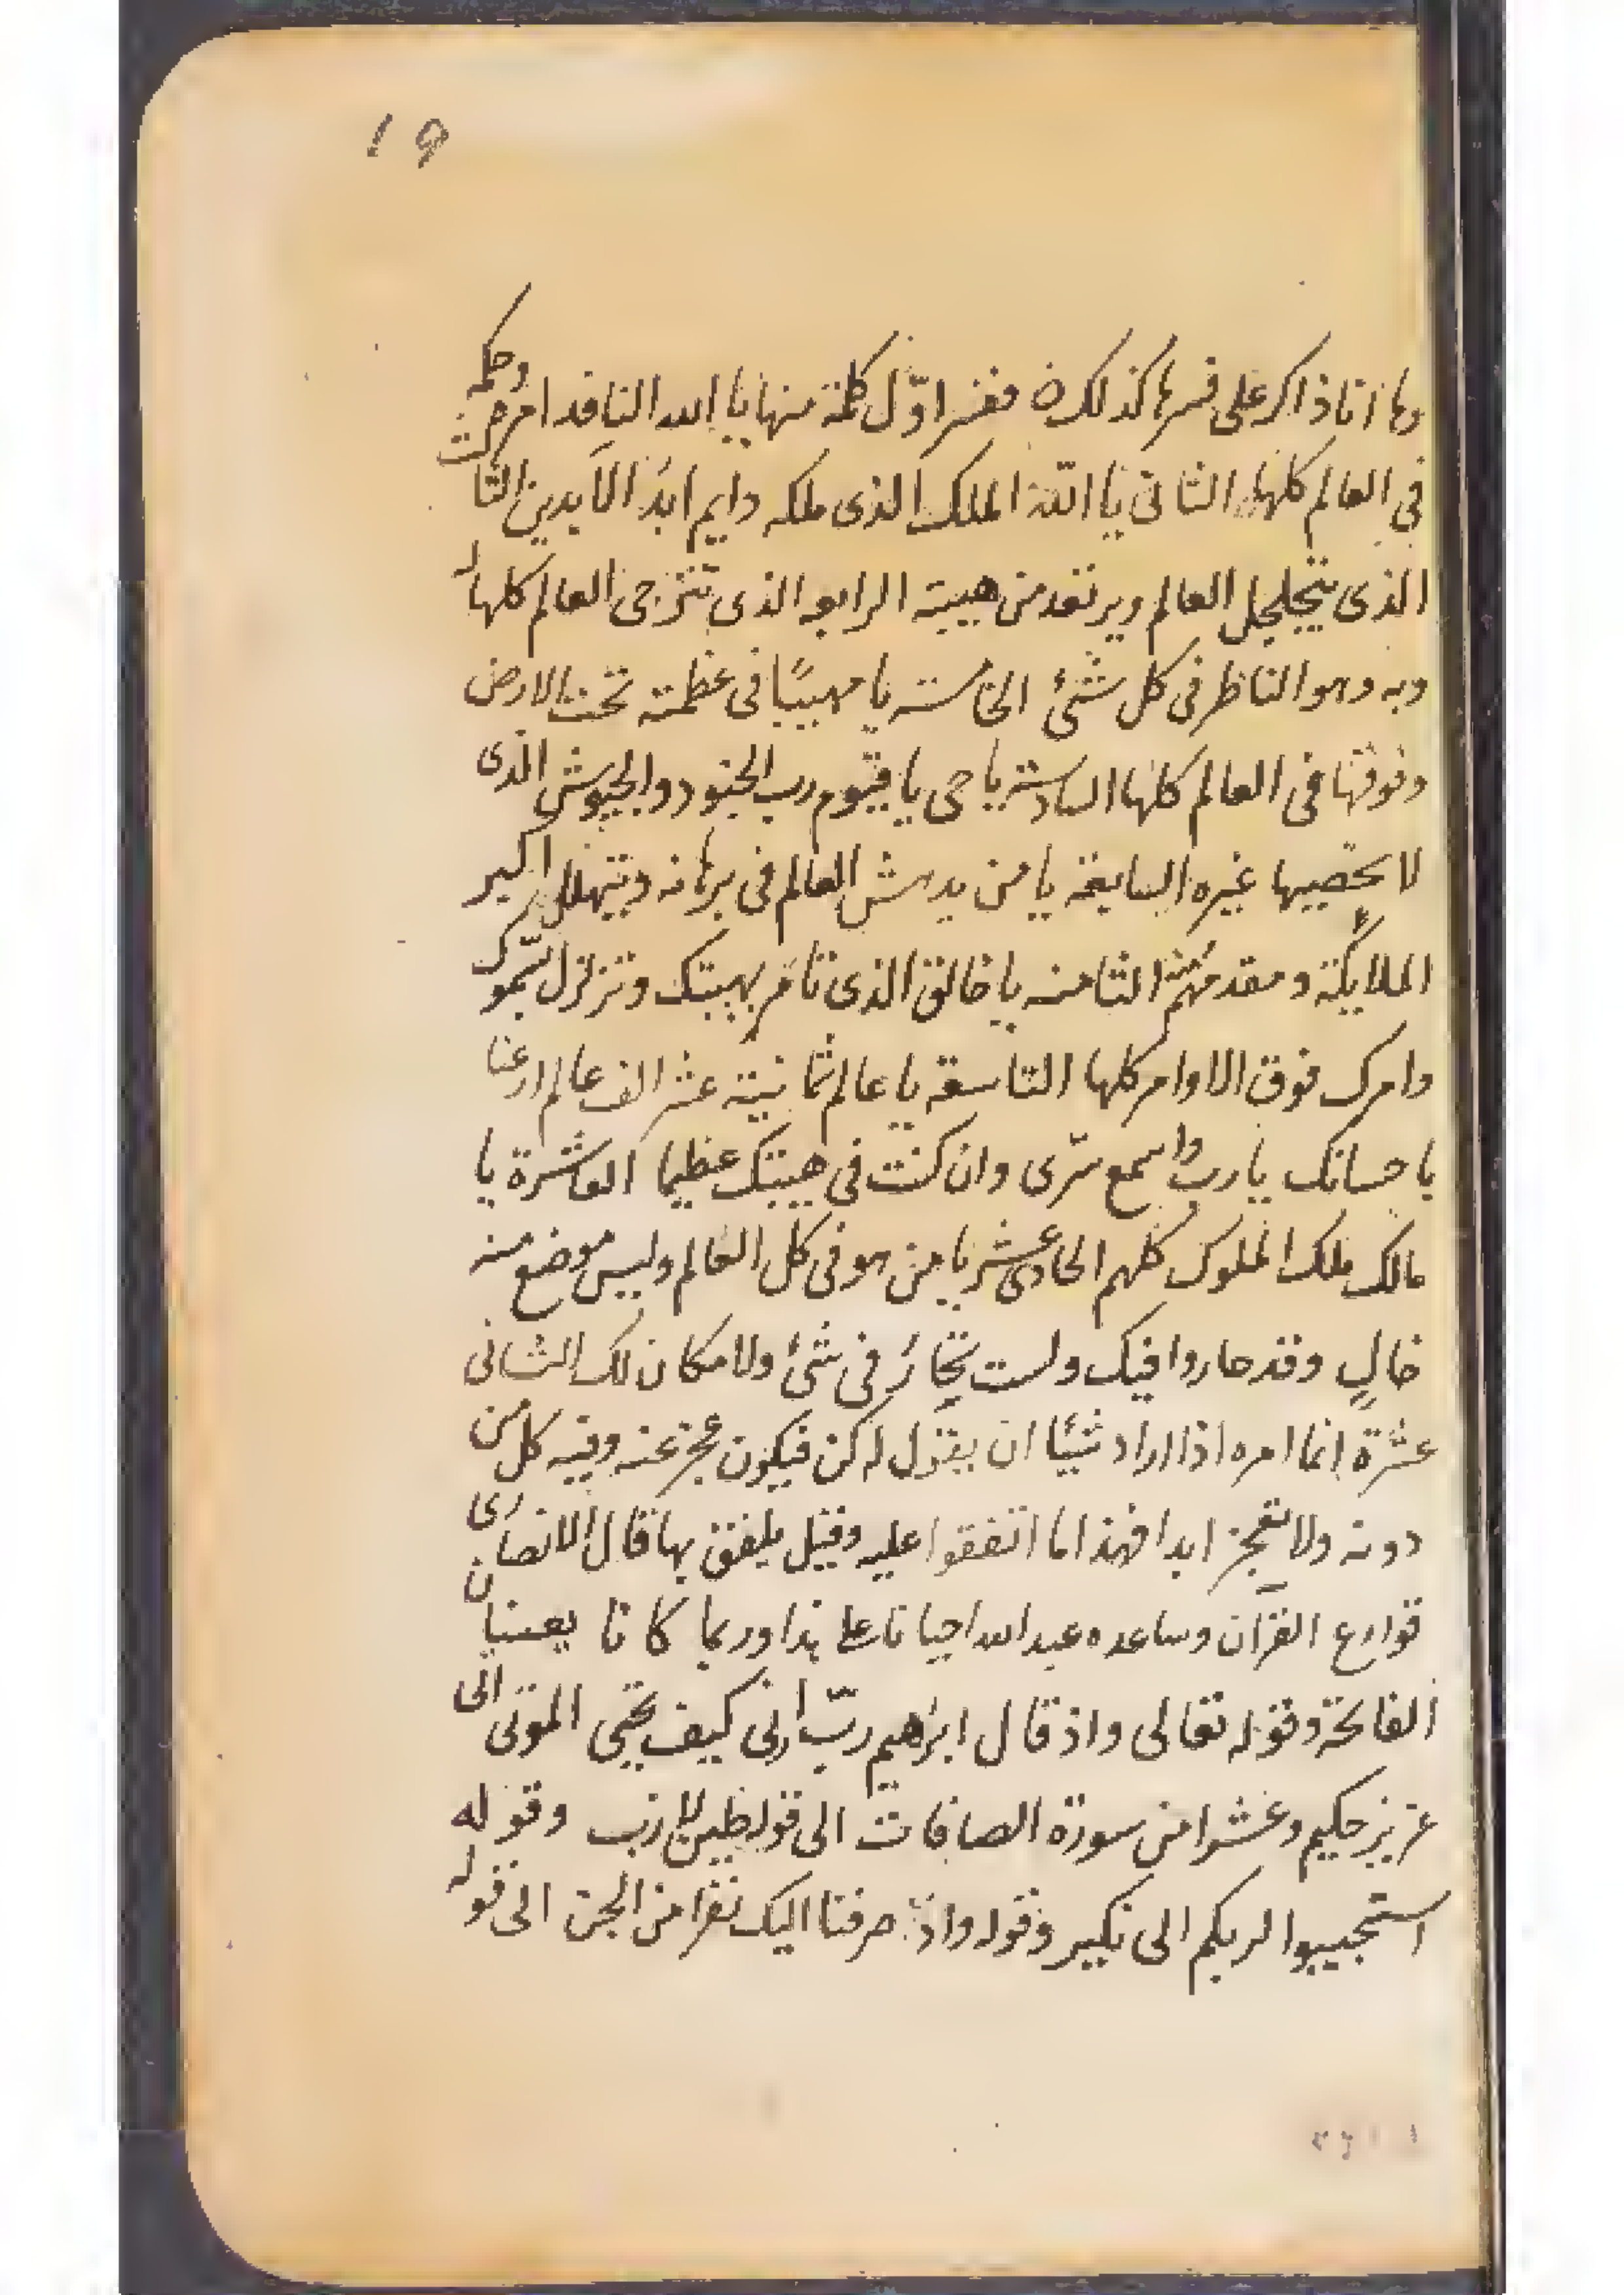 19
وها انا ذاكر على فسرها كذلك ه ففسر اوّل كلمة منها يا الله النافد امره وحكمه
في العالم كلها الثانى يا الله الملك الذى ملكه دايم ابدَ الآبدين الثالث
الذى يتجلجل العالم ويرتعد من هيبته الرابع الذى تترجى العالم كلها له
وبه وهو الناظر فى كل شئ الخامسة يا مهيبًا فى عظمته تحت الارض
وفوقها فى العالم كلها السادسة يا حى يا قيوم رب الجنود والجيوش الذى
لا يحصيها غيره السابعة يا من يدهش العالم فى برهانه ويتهلل اكبر
الملايكة ومقدمهم الثامنه يا خالق الذى تامر بهيبتك وتزلزل بسموك
وامرك فوق الاوامر كلها التاسعة يا عالم ثمانية عشر الف عالم ارعنا
باحسانك يا رب واسمع سرّى وان كنت فى هيبتك عظيما العاشرة يا
مالك ملك الملوك كلهم الحادى عشر يا من هو فى كل العالم وليس موضع منه
خالٍ وقد حاروا فيك ولست تحار فى شئ ولا مكان لك الثانى
عشرة انما امره اذا اراد شيئا ان يقول له كن فيكون عجز عنه وفيه كل من
دونه ولا يعجز ابدا فهذا ما اتفقوا عليه وقيل يلفق بها قال الانصارى
قوارع القرآن وساعده عبد الله احيانا على هذا وربما كانا يعنيان
الفاتحة وقوله تعالى واذ قال ابراهيم ربّ ارنى كيف تحيى الموتى الى
عزيز حكيم وعشرا من سورة الصافات الى قوله طين لازب وقوله
استجيبوا لربكم الى نكير وقوله واذ صرفنا اليك نفرا من الجن الى قوله